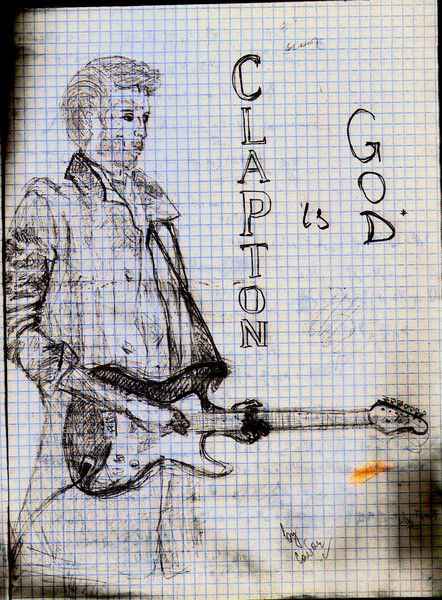 CLAPTON
is
GOD
by